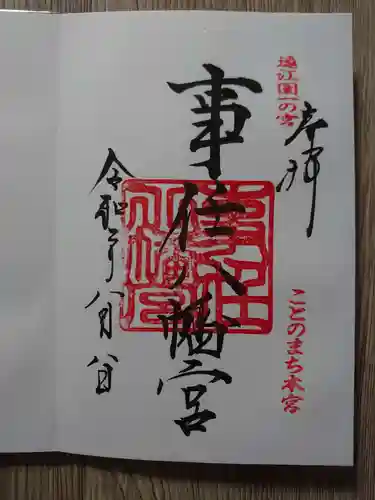 遠江國一の宮
奉拝
ことのまち本宮
事任八幡宮
令和二年八月八日